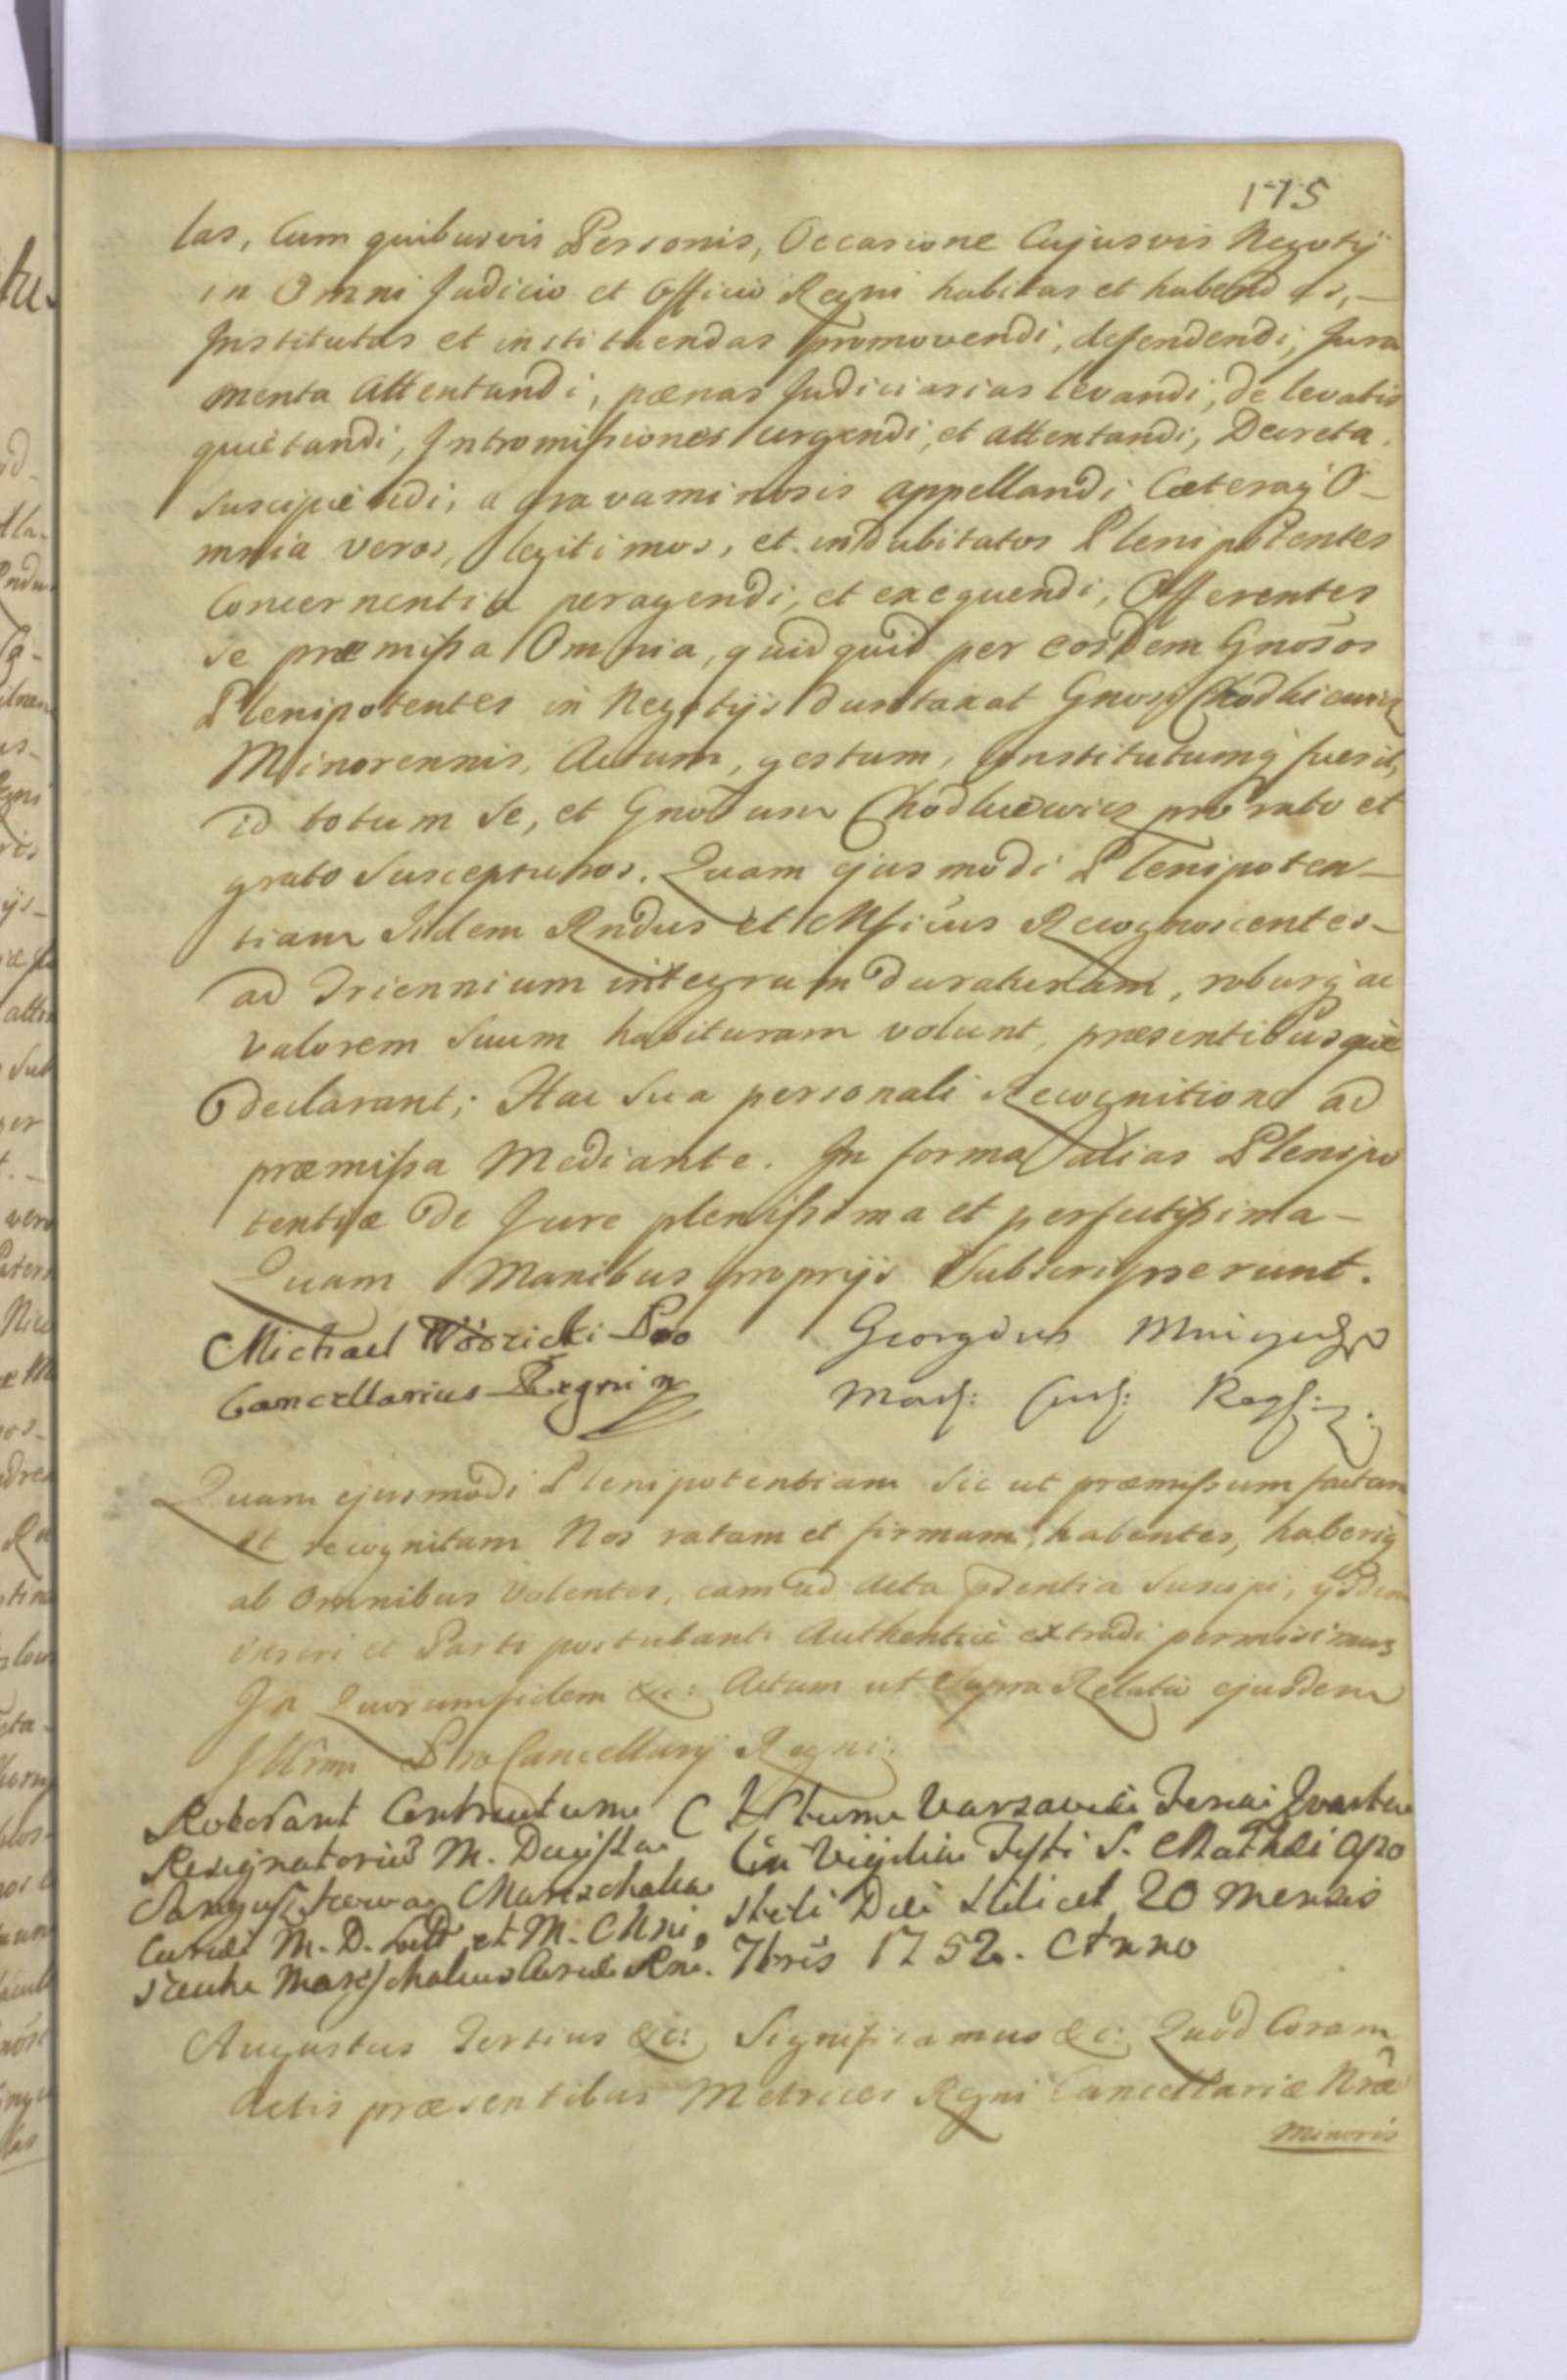 175
las, Cum quibusvis Personis, Occasione Cujusvis Negotij
in Omni Judicio et Officio Regni habitas et habendas,—
Institutas et instituendas promovendi, defendendi, Jura
menta attentandi, pænas Judiciarias levandi, de levatis
quietandi, Intromissiones urgendi, et attentandi, Decreta
suscipiendi, a gravaminosis appellandi Cæteraq O–
mnia veros, legitimos, et indubitatos Plenipotentes
Concernentia peragendi, et exequendi, Offerentes
se præmissa Omnia, quidquid per eosdem Gnosos
Plenipotentes in Negotijs duntaxat Gnosi Chodkiewicz
Minorennis, Actum, gestum, Constitutumq fuerit,
id totum se, et Gnosum Chodkiewicz pro rato et
grato suscepturos. Quam ejusmodi Plenipoten–
tiam Iidem Rndus et Mficus Recognoscentes–
ad Triennium integrum duraturam, roburq ac
valorem suum habituram volunt, præsentibusque
declarant; Hac sua personali Recognitione ad
præmissa Mediante. In forma alias Plenipo
tentiæ de Jure plenissima et perfectissima–
Quam Manibus proprijs Subscripserunt.
Michael Wodzicki Pro Georgius Mniszech
Cancellarius Regni Mars: Cur: Reg:
Quam ejusmodi Plenipotentiam sic ut præmissum factam
et recognitam Nos ratam et firmam habentes, haberiq
ab Omnibus Volentes, eam ad Acta pntia Suscipi, ijsdem
inseri et Parti postulanti Authentice extradi permisimus
In Quorum fidem &c: Actum ut Supra Relatio ejusdem
Illrmi Pro Cancellarij Regni.
Roborant Contractum Actum Varsaviæ Feria Quarta
Resignatorium M. Duxissa in Vigilia Festi S. Mathæi Apo
Sanguszkowa Marschalca stoli Die scilicet 20 Mensis
Curiæ M. D. Litt et M. Mni 7bris 1752. Anno
szech Marschalcus Curiæ Rni.
Augustus Tertius &c: Significamus &c: Quod Coram
Actis præsentibus Metrices Regni Cancellariæ Nræ
Minoris